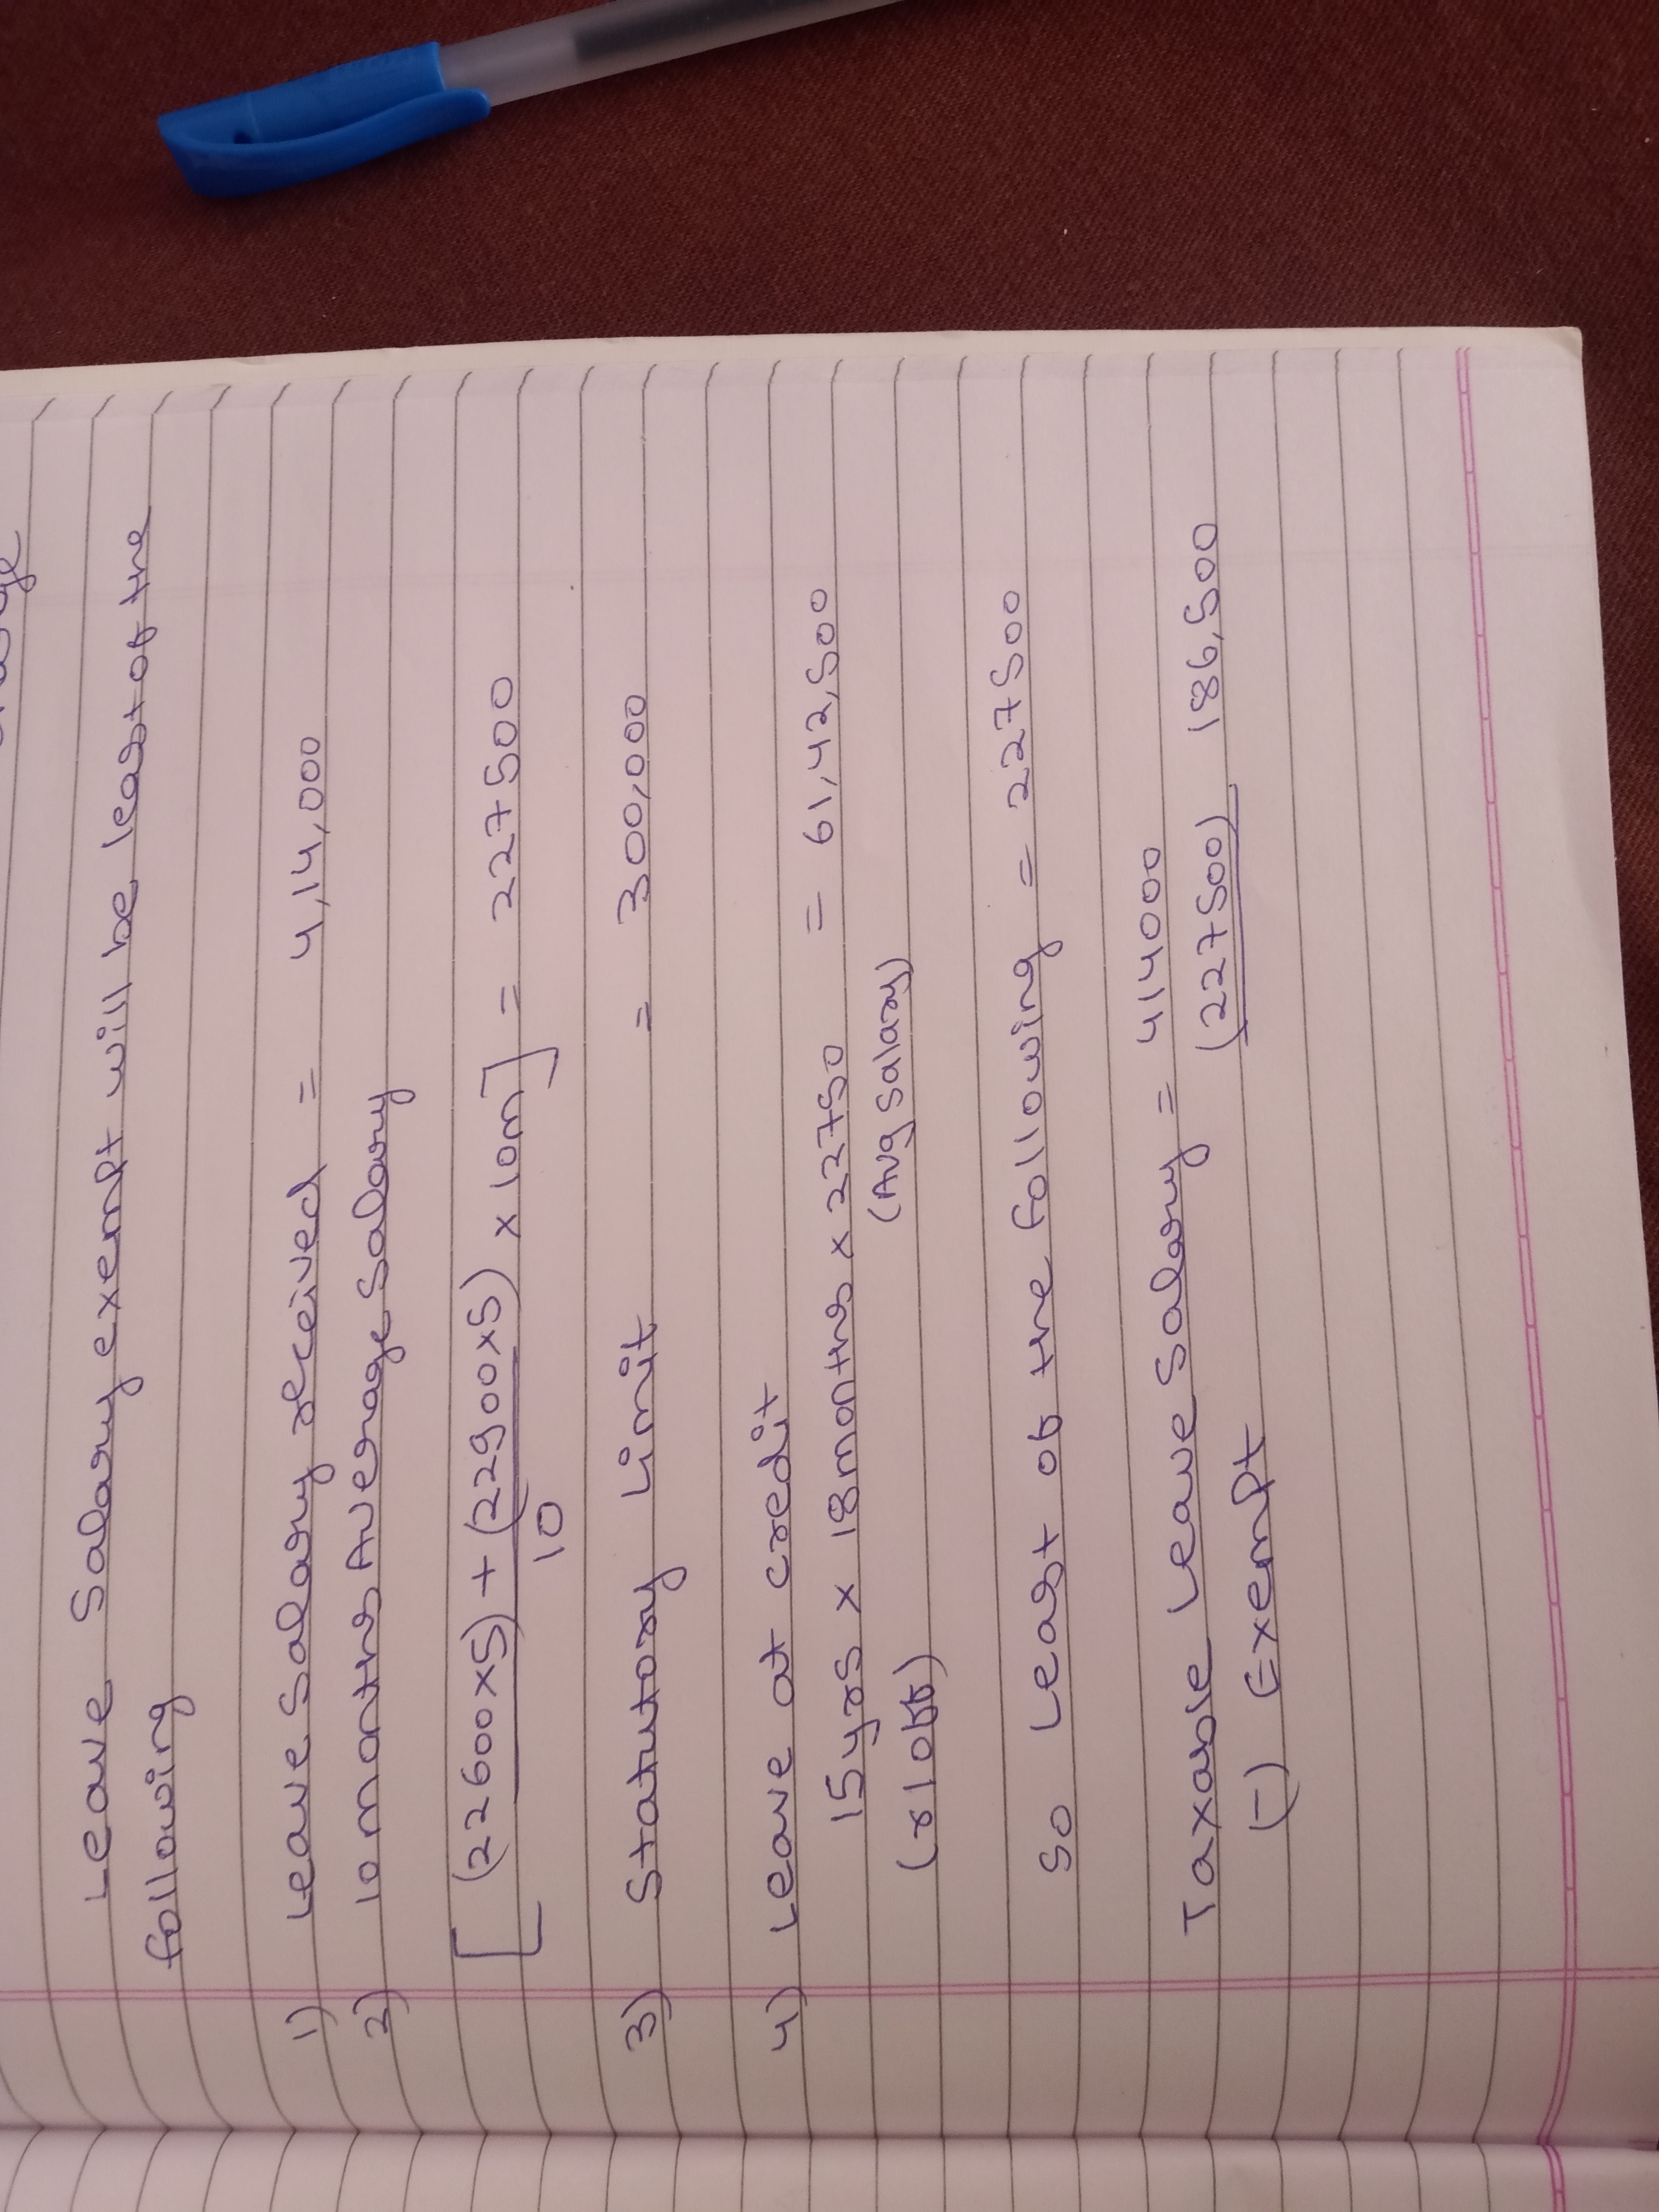 Leave Salary exempt will be least of the
following
1) Leave Salary received = 4,14,000
2) 10 months Average Salary
[(22600x5) + (22900x5) x 10m] = 227500
10
3) Statutory Limit = 300,000
4) Leave at credit
15yrs x 18months x 22750 = 61,42,500
(r/off) (Avg Salary)
So Least of the following = 227500
Taxable Leave Salary = 414000
(-) Exempt (227500) 186,500